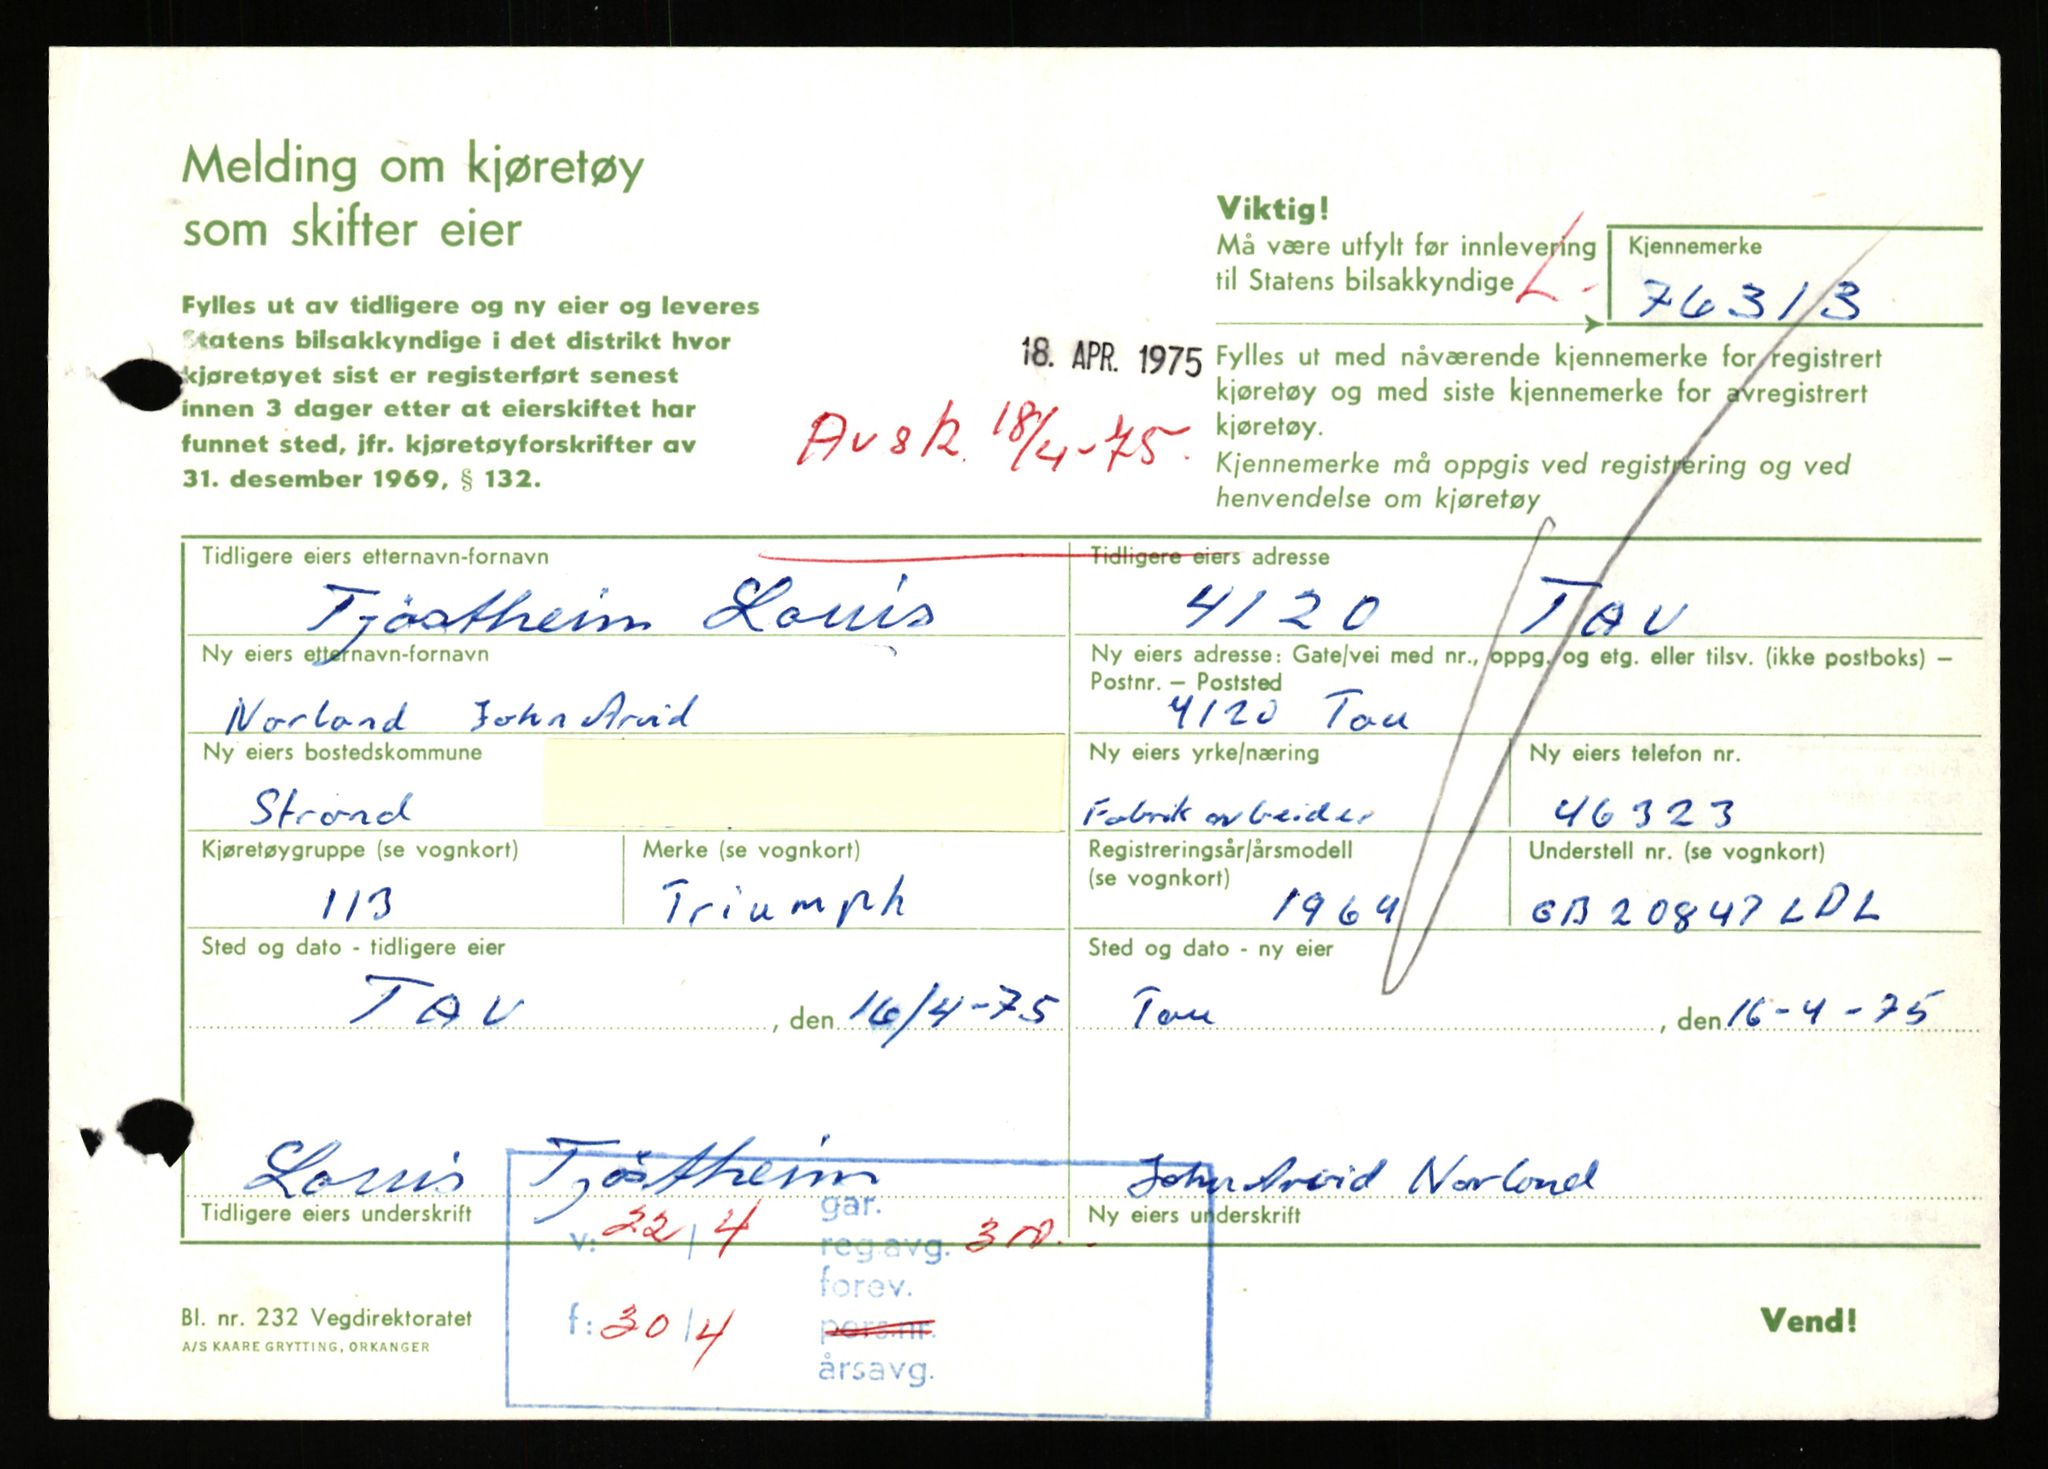 Melding om kjøretøy
som skifter eier
Fylles ut av tidligere og ny eier og leveres
Statens bilsakkyndige i det distrikt hvor
kjøretøyet sist er registerført senest
innen 3 dager etter at eierskiftet har
funnet sted, jfr. kjøretøyforskrifter av
31. desember 1969, § 132.
18. APR. 1975
Avsk. 18/4-75.
Viktig!
Må være utfylt før innlevering
til Statens bilsakkyndige
L-
Kjennemerke
76313
Fylles ut med nåværende kjennemerke for registrert
kjøretøy og med siste kjennemerke for avregistrert
kjøretøy.
Kjennemerke må oppgis ved registrering og ved
henvendelse om kjøretøy
Tidligere eiers etternavn-fornavn
Tjöstheim Louis
Tidligere eiers adresse
4120 TAU
Ny eiers etternavn-fornavn
Norland John Arvid
Ny eiers adresse: Gate/vei med nr., oppg. og etg. eller tilsv. (ikke postboks) –
Postnr. – Poststed
4120 Tau
Ny eiers bostedskommune
Strand
Ny eiers yrke/næring
Fabrikarbeider
Ny eiers telefon nr.
46323
Kjøretøygruppe (se vognkort)
113
Merke (se vognkort)
Triumph
Registreringsår/årsmodell
(se vognkort)
1964
Understell nr. (se vognkort)
GB20847LDL
Sted og dato - tidligere eier
TAU, den 16/4-75
Sted og dato - ny eier
Tau, den 16-4-75
Louis Tjöstheim
Tidligere eiers underskrift
John Arvid Norland
Ny eiers underskrift
v: 22/4
f: 30/4
gar.
reg.avg.
forev.
pers.nr.
årsavg.
Bl. nr. 232 Vegdirektoratet
A/S KAARE GRYTTING, ORKANGER
Vend!